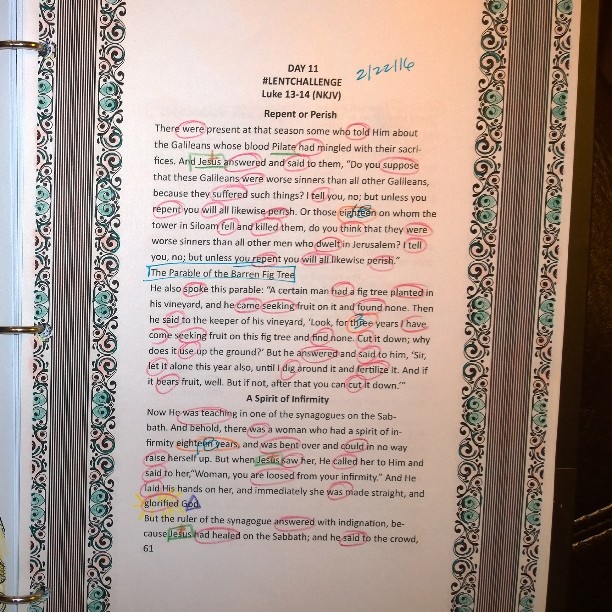 DAY 11
2/22/16
#LENTCHALLENGE
Luke 13-14 (NKJV)
Repent or Perish
There were present at that season some who told Him about
the Galileans whose blood Pilate had mingled with their sacri-
fices. And Jesus answered and said to them, “Do you suppose
that these Galileans were worse sinners than all other Galileans,
because they suffered such things? I tell you, no; but unless you
repent you will all likewise perish. Or those eighteen on whom the
tower in Siloam fell and killed them, do you think that they were
worse sinners than all other men who dwelt in Jerusalem? I tell
you, no; but unless you repent you will all likewise perish.”
The Parable of the Barren Fig Tree
He also spoke this parable: “A certain man had a fig tree planted in
his vineyard, and he came seeking fruit on it and found none. Then
he said to the keeper of his vineyard, ‘Look, for three years I have
come seeking fruit on this fig tree and find none. Cut it down; why
does it use up the ground?’ But he answered and said to him, ‘Sir,
let it alone this year also, until I dig around it and fertilize it. And if
it bears fruit, well. But if not, after that you can cut it down.’”
A Spirit of Infirmity
Now He was teaching in one of the synagogues on the Sab-
bath. And behold, there was a woman who had a spirit of in-
firmity eighteen years, and was bent over and could in no way
raise herself up. But when Jesus saw her, He called her to Him and
said to her,“Woman, you are loosed from your infirmity.” And He
laid His hands on her, and immediately she was made straight, and
glorified God.
But the ruler of the synagogue answered with indignation, be-
cause Jesus had healed on the Sabbath; and he said to the crowd,
61